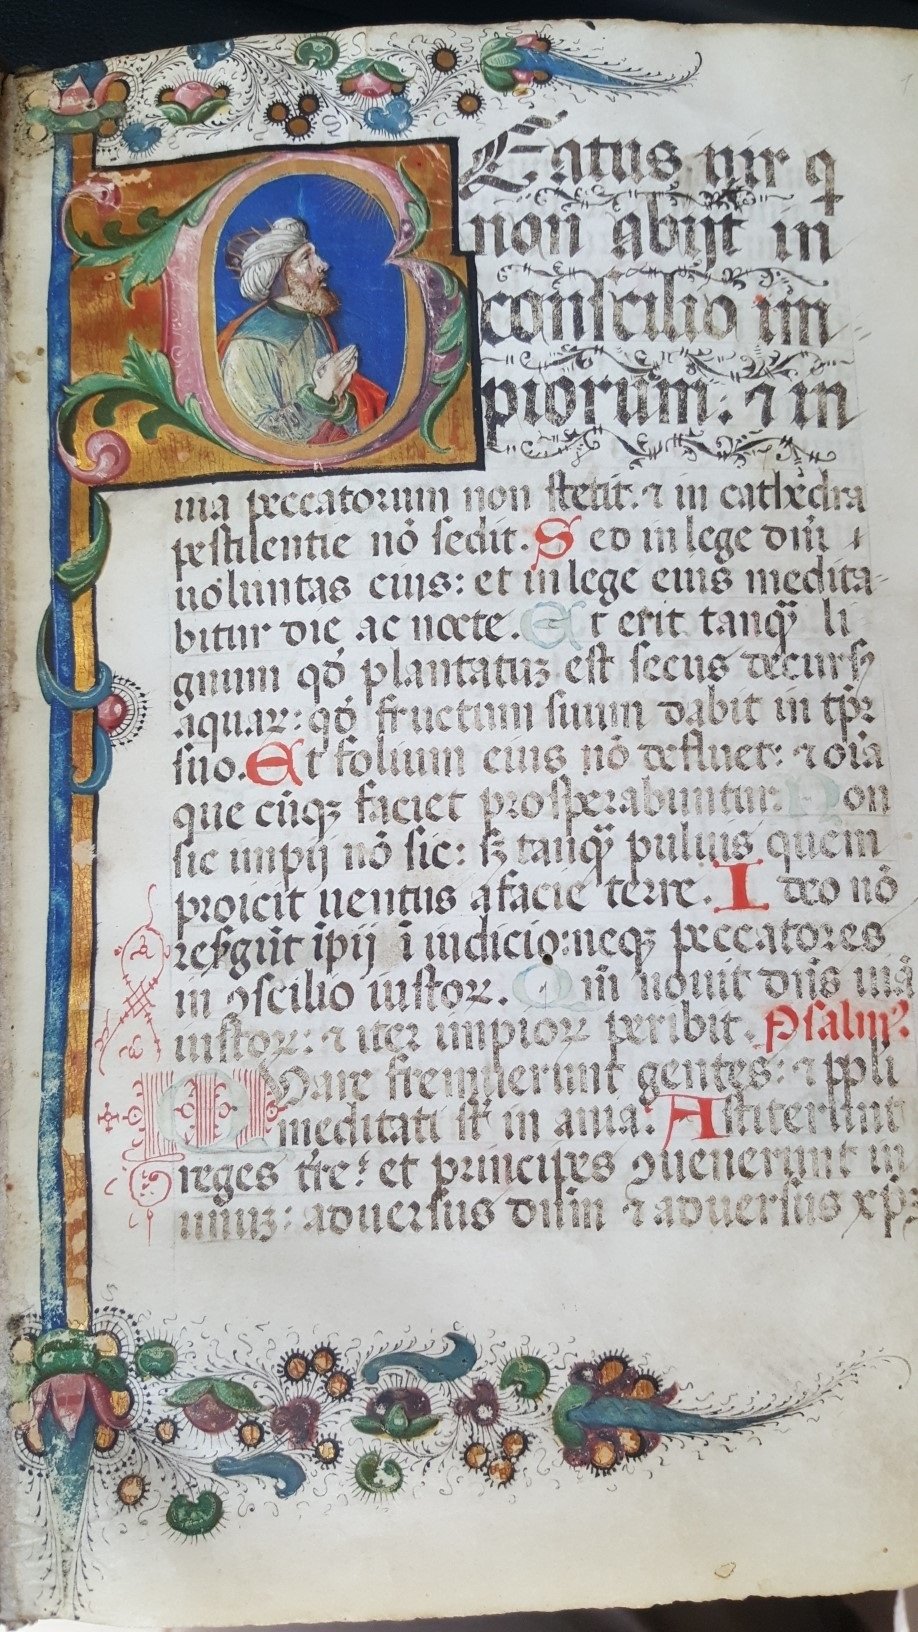 BEatus uir q
non abijt in
conscilio im
piorum: ⁊ in
uia peccatorum non stetit: ⁊ in cathedra
pestilentie nō sedit. Sed in lege dn̄i
uoluntas eius: et in lege eius medita-
bitur die ac nocte. Et erit tanqꝫ li
gnum qď plantatuꝫ est secus decursꝰ
aquaꝝ: qď fructum suum dabit in tp̄r
suo. Et folium eius nō defluet: ⁊ oīa
que cūqꝫ faciet prosperabuntur: Non
sic impij nō sic: sꝫ tanqꝫ puluis quem
proicit uentus afacie terre. Ideo nō
resurgūt īpij ī iudicio: neqꝫ peccatores
in ꝯscilio iustoꝝ. Qm̄ nouit dn̄s uiā
iustoꝝ: ⁊ iter impioꝝ peribit. Psalmꝰ
QVare fremuerunt gentes: ⁊ ppl̄i
meditati st̄ in ania: Astiterunt
reges tr̄re: et principes ꝯuenerunt in
unuꝫ: aduersus dnm̄ ⁊ aduersus xp̄ꝫ